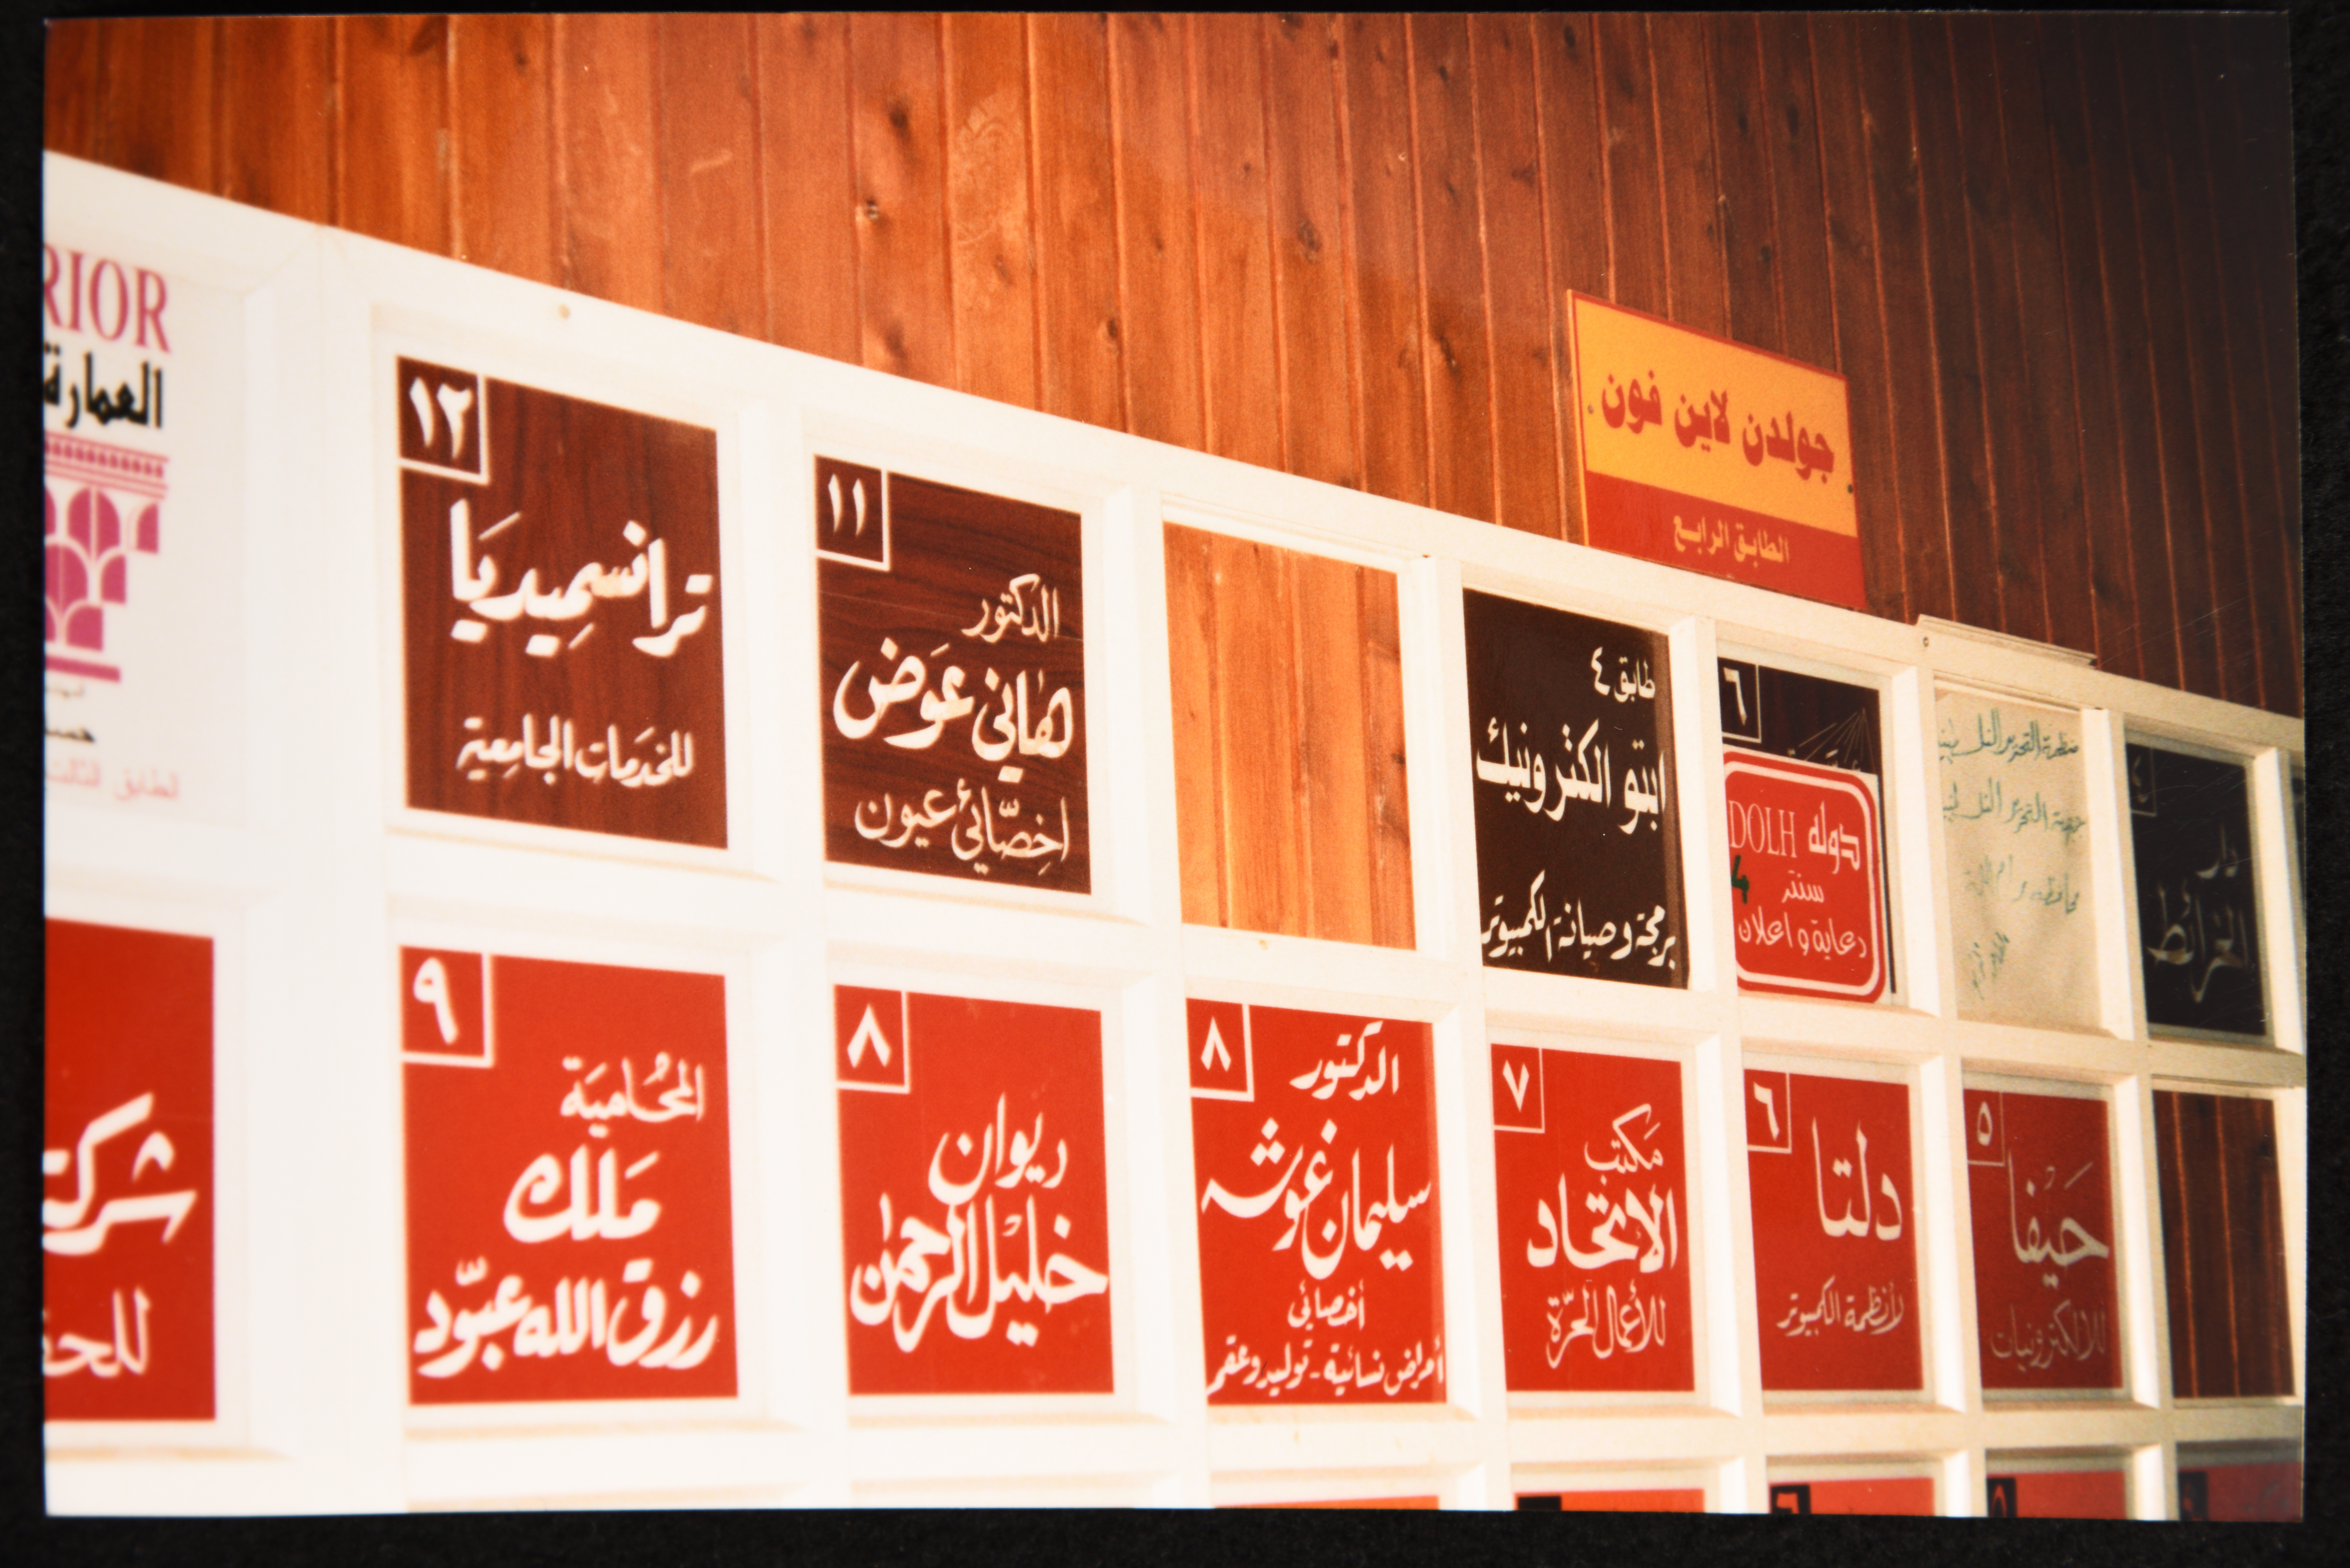 جولدن لاين فون
الطابق الرابع
RIOR
العمارة
الطابق الثالث
١٢
ترانسميديا
للخدمات الجامعية
١١
الدكتور
هاني عوض
اخصائي عيون
طابق ٤
ابتو الكترونيك
برمجة وصيانة الكمبيوتر
٦
دوله DOLH
سنتر
4
دعاية و اعلان
محافظة رام الله
٤
دار
الخرائط
شركة
٩
المحامية
ملك
رزق الله عبود
٨
ديوان
خليل الرحمن
٨
الدكتور
سليمان غوشه
أخصائي
أمراض نسائية - توليد وعقم
٧
مكتب
الاتحاد
للأعمال الحرة
٦
دلتا
لأنظمة الكمبيوتر
٥
حيفا
للالكترونيات